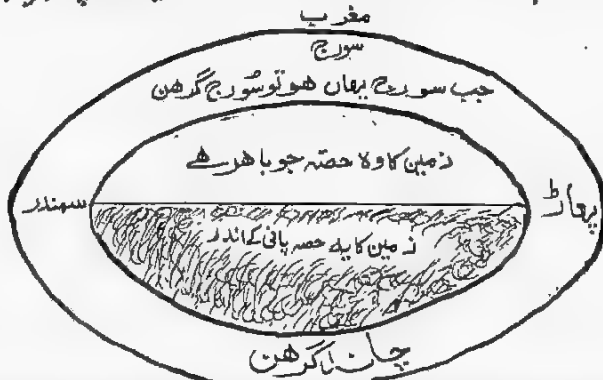 مغرب
سورج
جب سورج یہاں ہو تو سورج گرہن
زمین کا وہ حصہ جو باہر ہے
سمندر
پہاڑ
زمین کا یہ حصہ پانی کے اندر
چاند گرہن